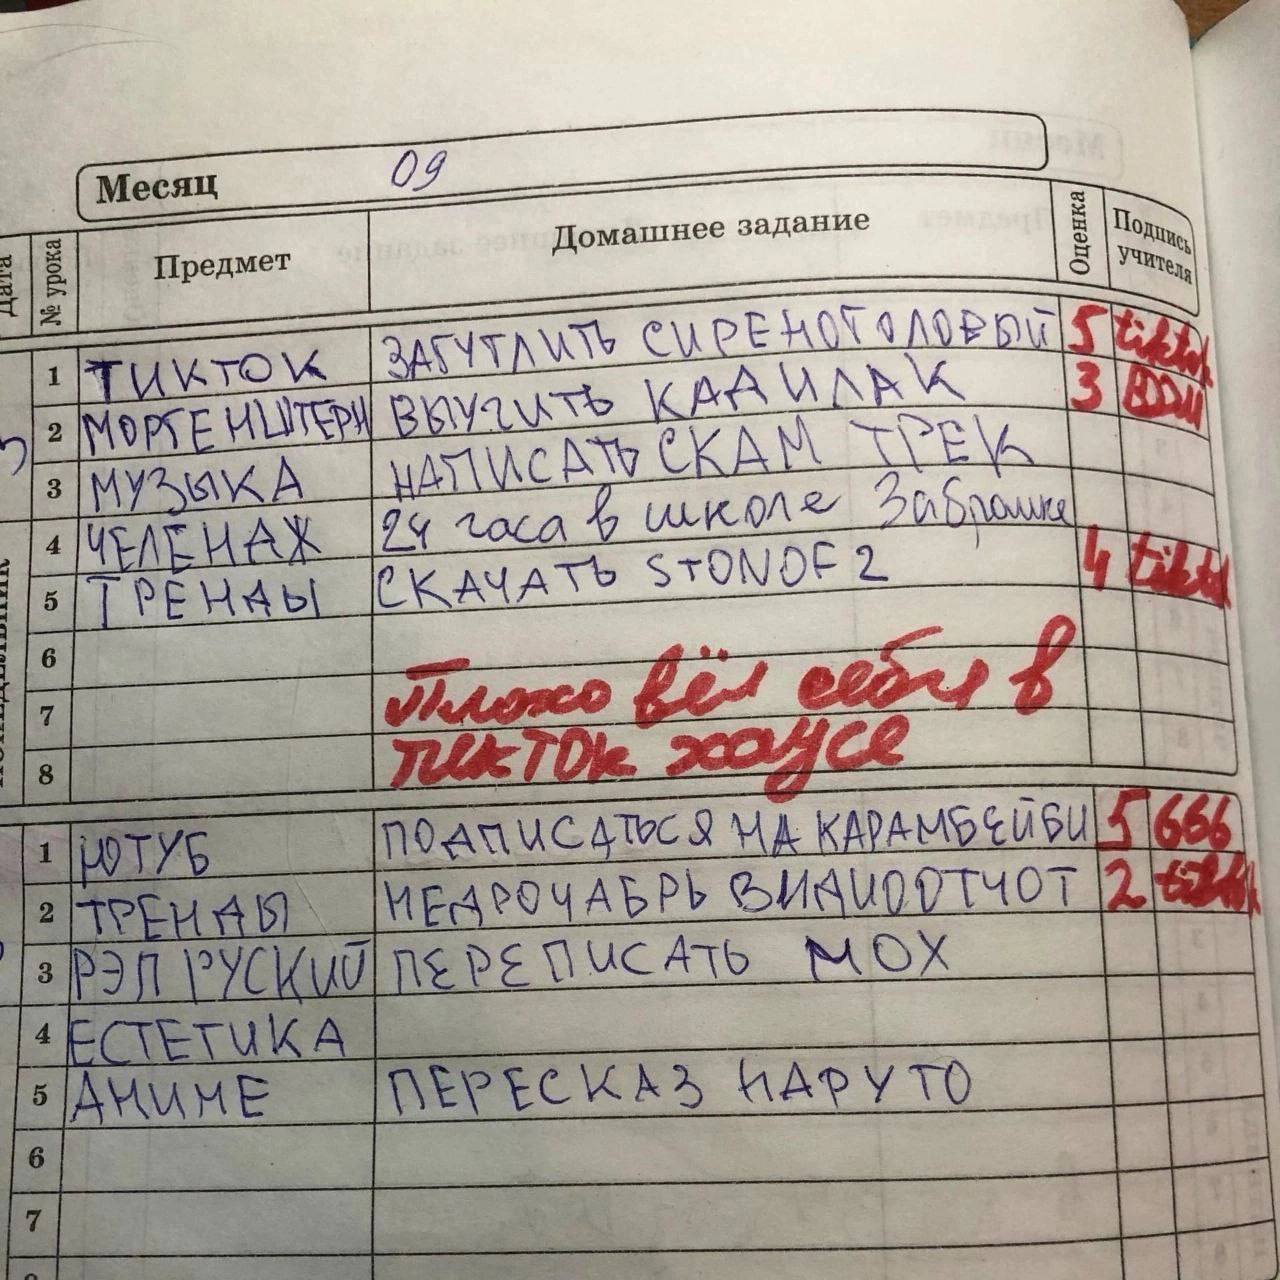 Месяц 09
Дата № урока Предмет Домашнее задание Оценка Подпись учителя
ПОНЕДЕЛЬНИК
1 ТИКТОК ЗАГУГЛИТЬ СИРЕНОГОЛОВЫЙ 5 tiktok
2 МОРГЕНШТЕРН ВЫУЧИТЬ КАДИЛАК 3
3 МУЗЫКА НАПИСАТЬ СКАМ ТРЕК
4 ЧЕЛЕНАЖ 24 часа в школе Заброшке
5 ТРЕНДЫ СКАЧАТЬ STONOF 2 4 tiktok
6
7 Плохо вёл себя в
8 тикток хаусе
1 ЮТУБ ПОДПИСАТЬСЯ НА КАРАМБЕЙБИ 5 666
2 ТРЕНДЫ НЕДРОЧАБРЬ ВИДИООТЧОТ 2 tiktok
3 РЭП РУСКИЙ ПЕРЕПИСАТЬ МОХ
4 ЕСТЕТИКА
5 АНИМЕ ПЕРЕСКАЗ НАРУТО
6
7
8